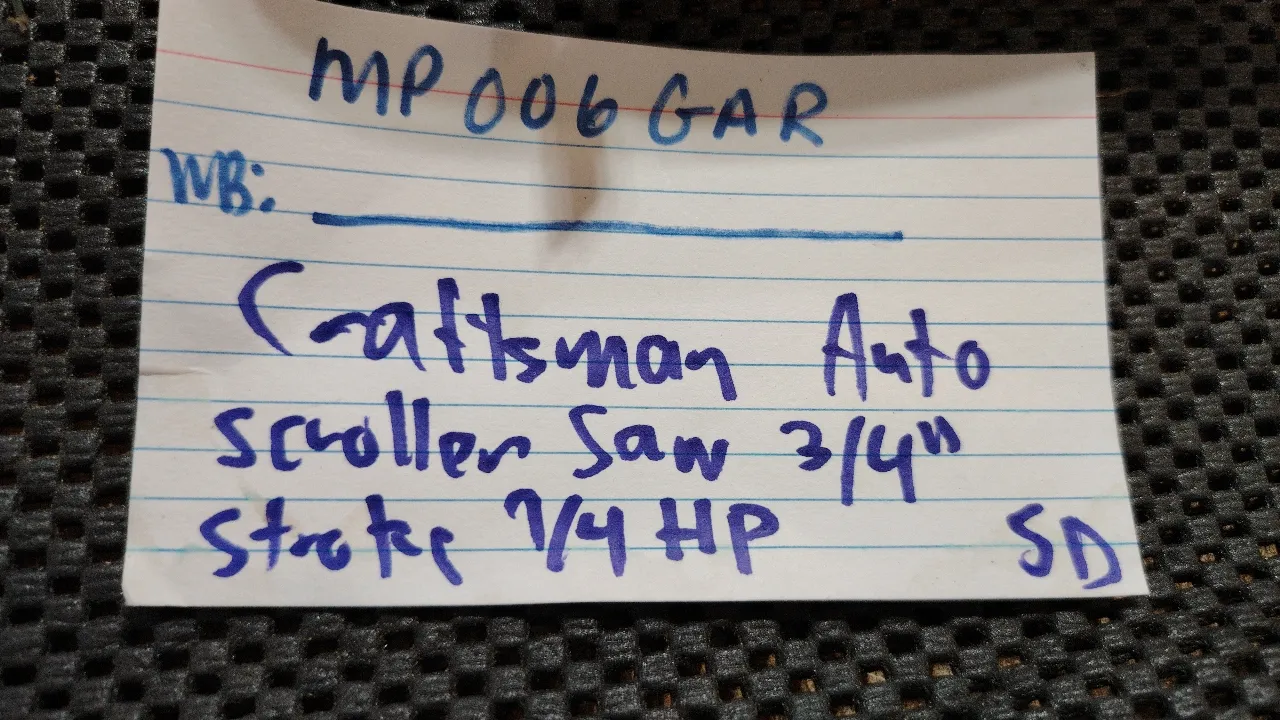 MP006GAR
WB:
Craftsman Auto
scroller Saw 3/4"
stroke 1/4 HP SD